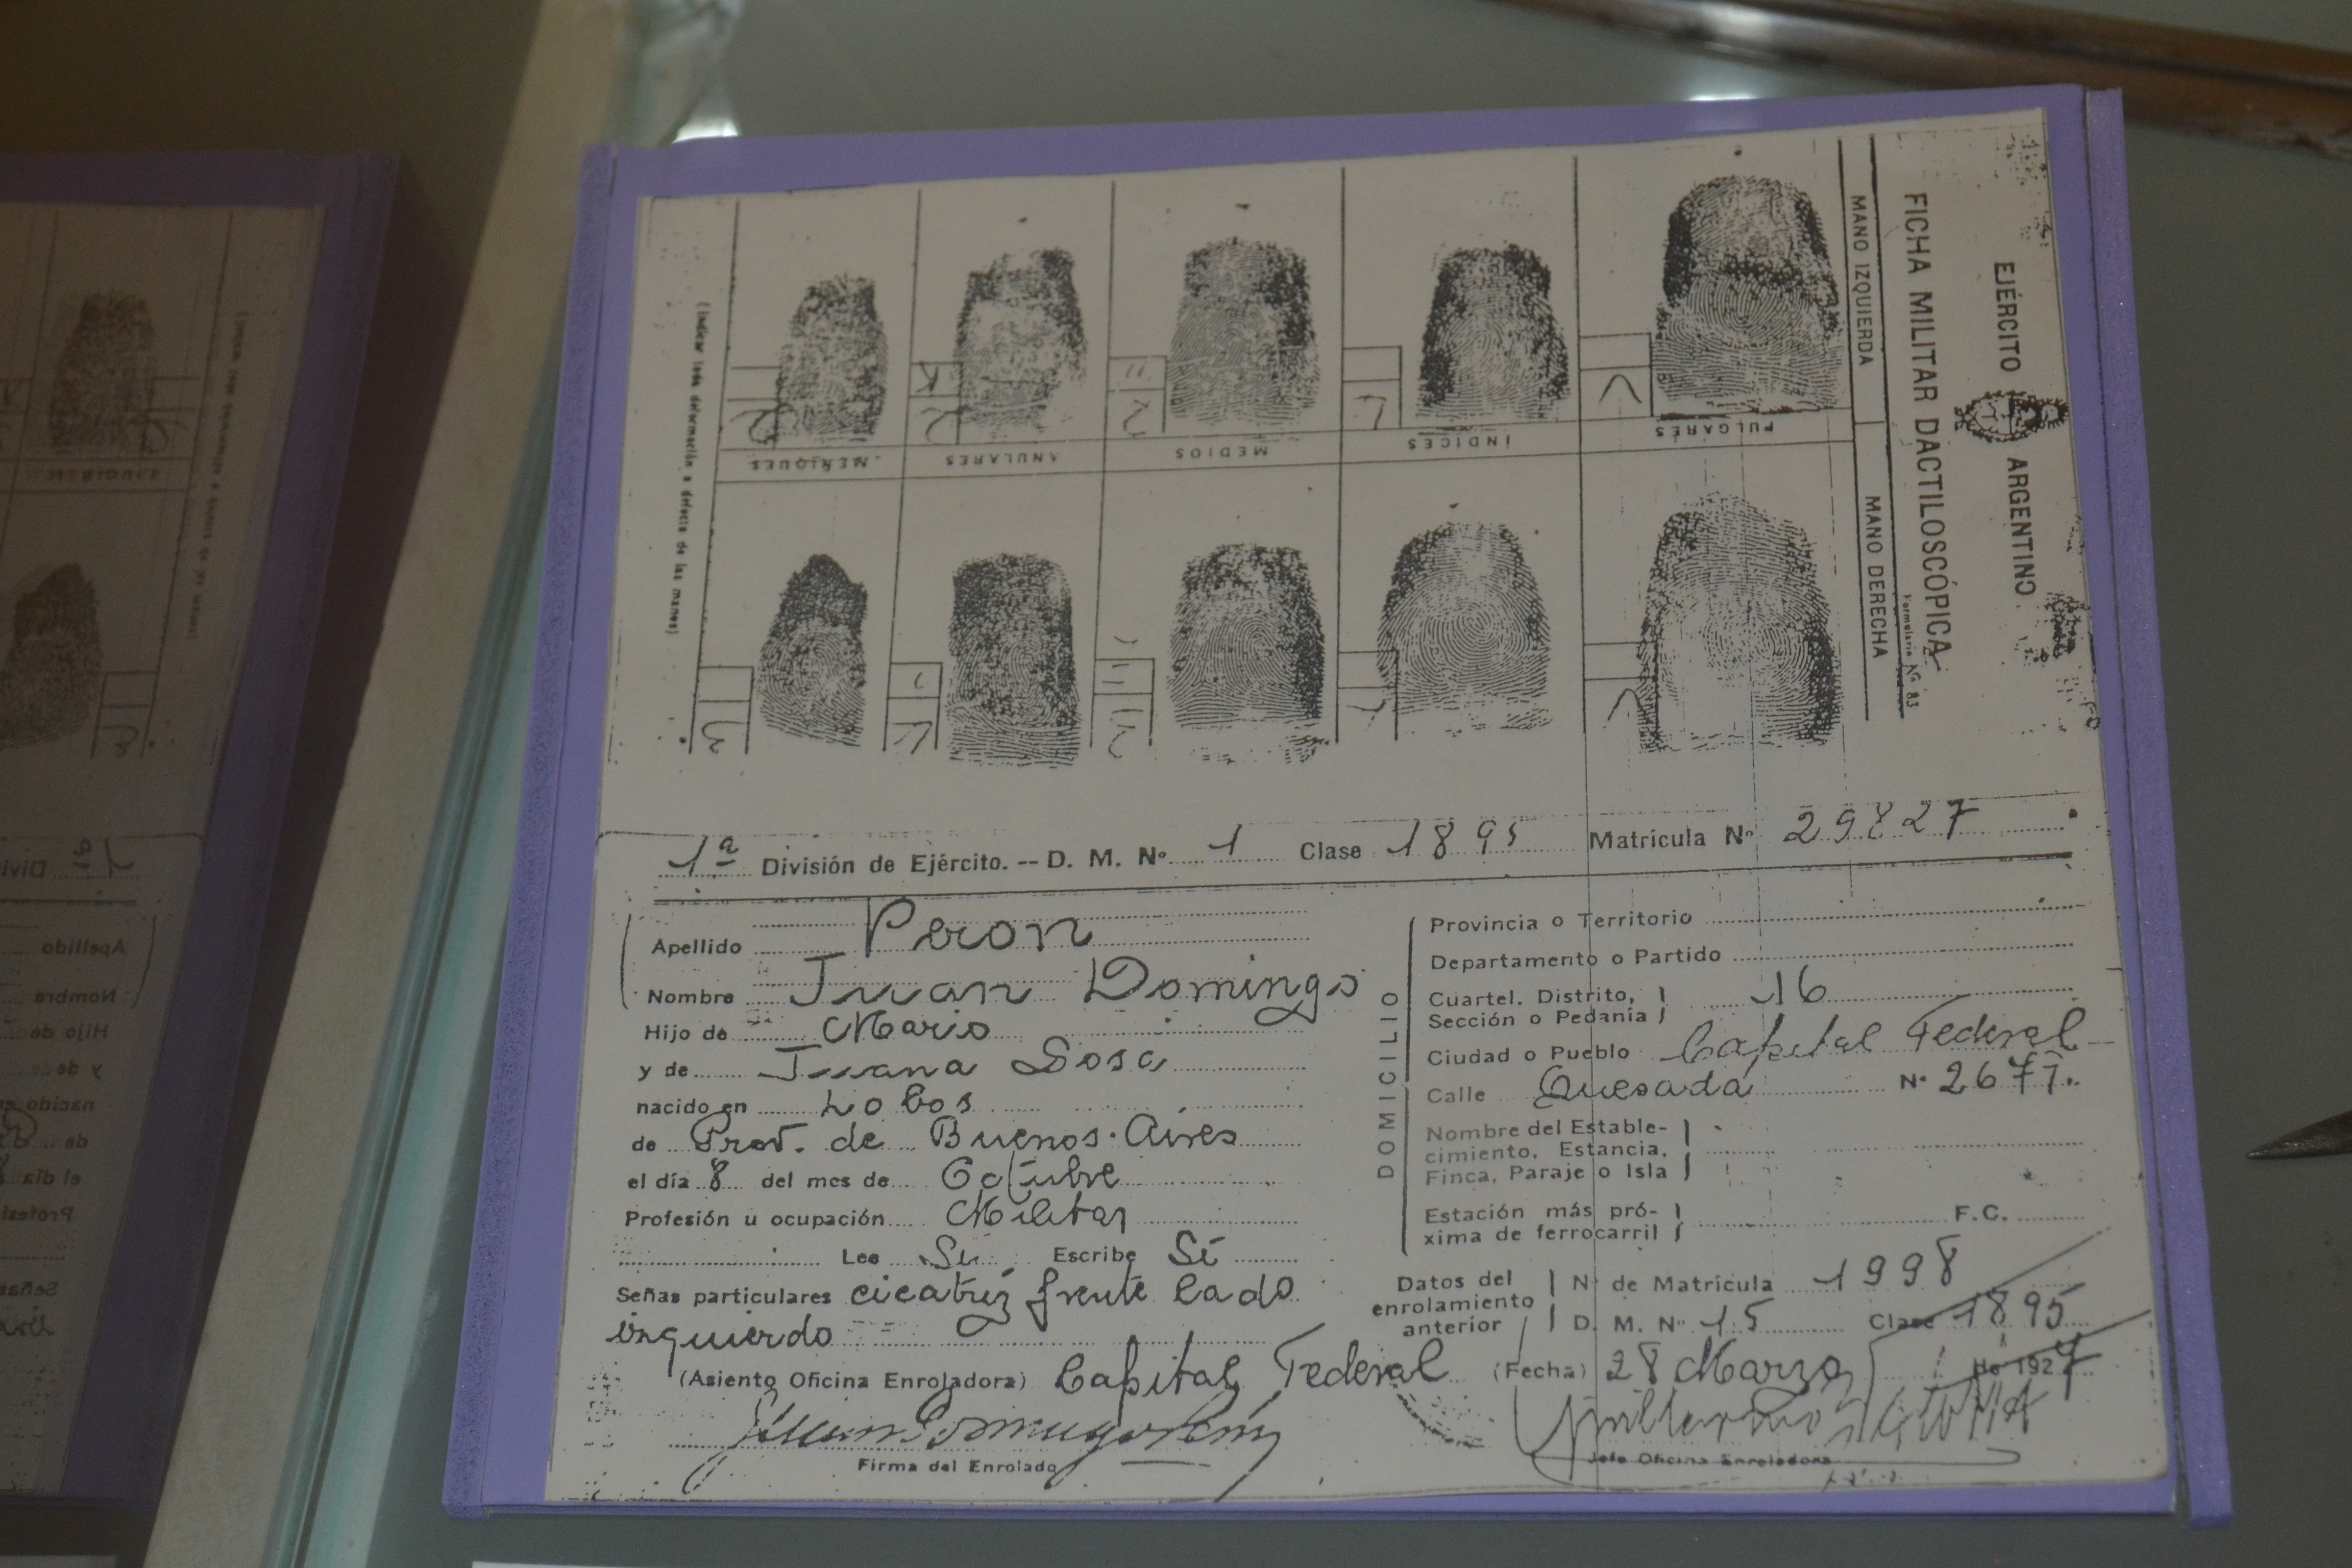 EJÉRCITO ARGENTINO
FICHA MILITAR DACTILOSCÓPICA
Formulario Nº 83
MANO IZQUIERDA MANO DERECHA
PULGARES
ÍNDICES
MEDIOS
ANULARES
MEÑIQUES
(Indicar toda deformación o defecto de las manos)
1ª División de Ejército. -- D. M. Nº 1 Clase 1895 Matrícula Nº 29827
Apellido Peron
Nombre Juan Domingo
Hijo de Mario
y de Juana Sosa
nacido en Lobos
de Prov. de Buenos Aires
el día 8 del mes de Octubre
Profesión u ocupación Militar
Lee Si Escribe Sí
Señas particulares cicatriz frente lado
izquierdo
DOMICILIO
Provincia o Territorio
Departamento o Partido
Cuartel, Distrito, 16
Sección o Pedanía
Ciudad o Pueblo Capital Federal
Calle Quesada Nº 2677.
Nombre del Estable-
cimiento, Estancia,
Finca, Paraje o Isla
Estación más pró-
xima de ferrocarril F.C.
Datos del
enrolamiento
anterior
Nº de Matrícula 1998
D. M. Nº 15 Clase 1895
(Asiento Oficina Enroladora) Capital Federal (Fecha) 28 Marzo de 1927
Juan Domingo Perón
Firma del Enrolado
Jefe Oficina Enroladora